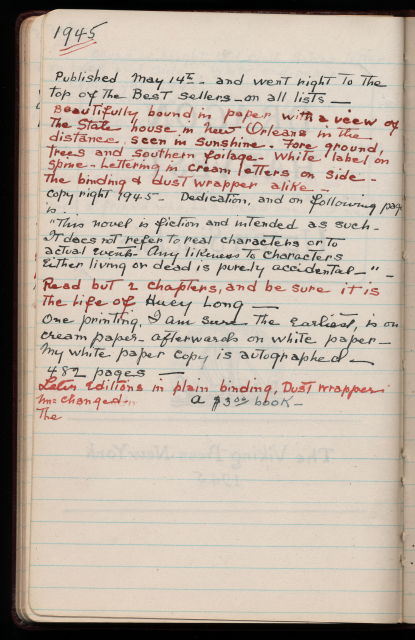 1945
Published May 14th - and went right to the
top of the Best sellers - on all lists -
Beautifully bound in paper with a view of
the State house in New Orleans in the
distance, seen in sunshine - Fore ground,
trees and southern foilage - White label on
spine - Lettering in cream letters on side -
The binding & dust wrapper alike -
Copy right 1945 - Dedication, and on following page
is -
"This novel is fiction and intended as such -
It does not refer to real characters or to
actual events - Any likeness to characters
Either living or dead is purely accidental -" -
Read but 2 chapters, and be sure it is
the life of Huey Long -
One printing, I am sure the earliest, is on
cream paper - afterwards on white paper -
My white paper copy is autographed -
482 pages -
Later editions in plain binding, Dust wrapper
unchanged - a $3.00 book -
The
The Viking Press New York
1945